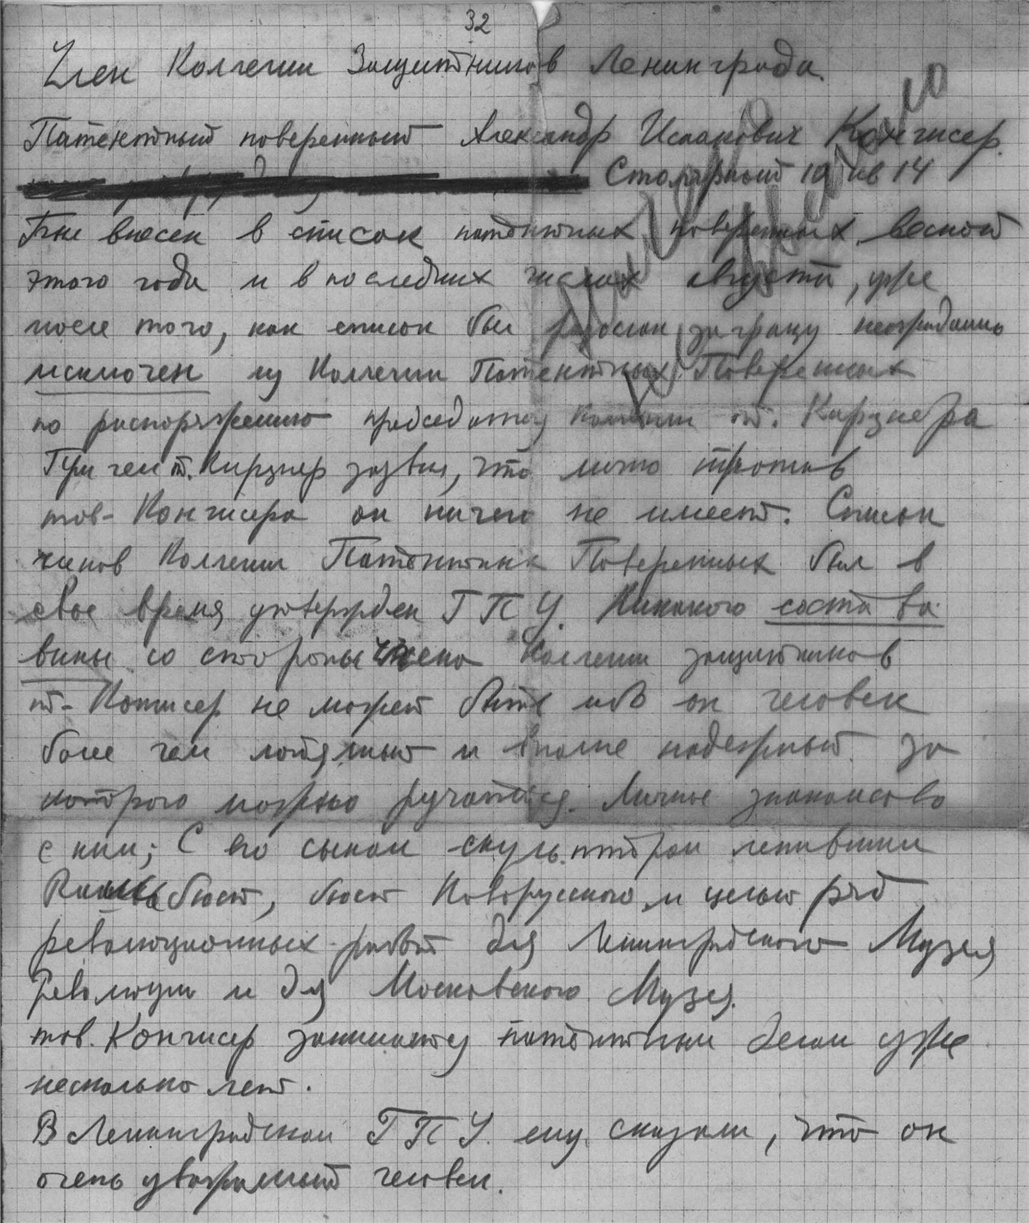 32
Член Коллегии Защитников Ленинграда.
Патентный поверенный Александр Исаакович Конгисер.
Столярный 10 кв 14
Был внесен в список патентных поверенных весной
этого года и в последних числах августа, уже
после того, как список был разослан заграницу неожиданно
исключен из Коллегии Патентных Поверенных
по распоряжению председателя Коллегии т.
При чем т. заявил, что лично против
тов- Конгисера он ничего не имеет. Список
членов Коллегии Патентных Поверенных был в
свое время утвержден Г П У. Никакого состава
вины со стороны члена Коллегии защитников
т- Конгисер не может быть ибо он человек
более чем лояльный и вполне надежный за
которого можно ручаться. Личное знакомство
с ним; С его сыном скульптором лепившим
бюст, бюст Новорусского и целый ряд
революционных работ для Ленинградского Музея
Революции и для Московского Музея.
тов. Конгисер занимается патентным делом уже
несколько лет.
В Ленинградском Г П У. ему сказали, что он
очень уважаемый человек.